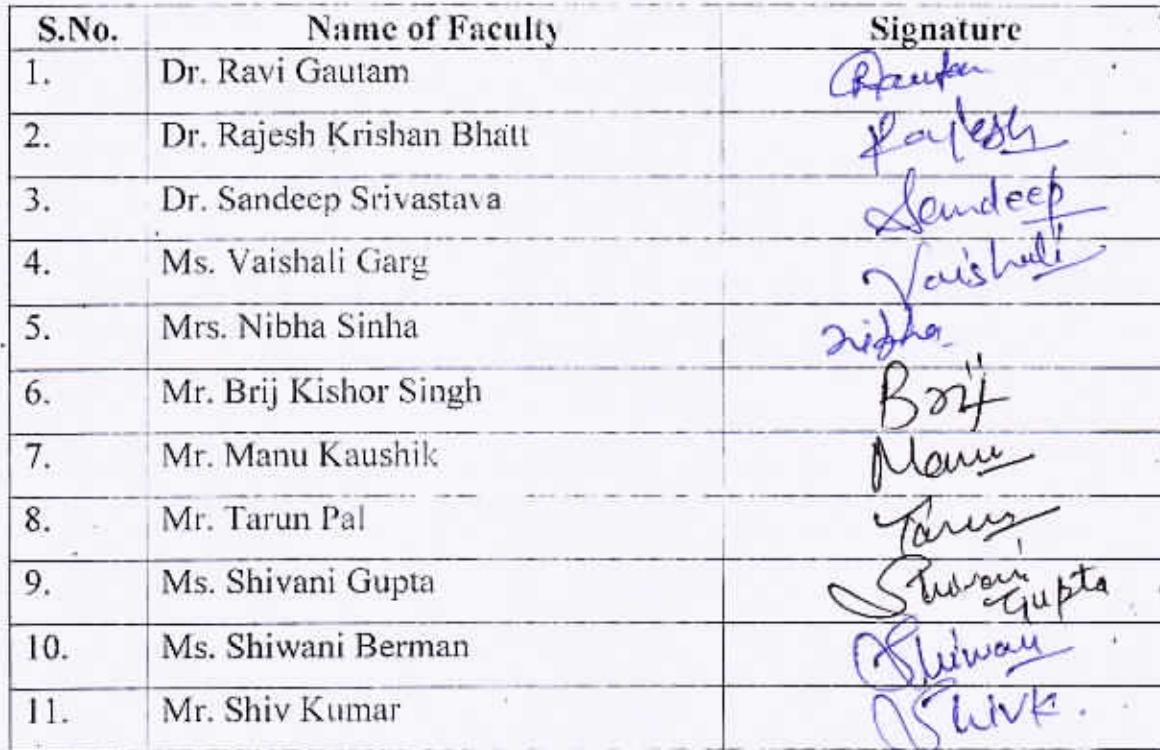 S.No. Name of Faculty Signature
1. Dr. Ravi Gautam Rautam
2. Dr. Rajesh Krishan Bhatt Rajesh
3. Dr. Sandeep Srivastava Sandeep
4. Ms. Vaishali Garg Vaishali
5. Mrs. Nibha Sinha nibha
6. Mr. Brij Kishor Singh Brij
7. Mr. Manu Kaushik Manu
8. Mr. Tarun Pal Tarun
9. Ms. Shivani Gupta Shivani
Gupta
10. Ms. Shiwani Berman Shiwani
11. Mr. Shiv Kumar ShivK.